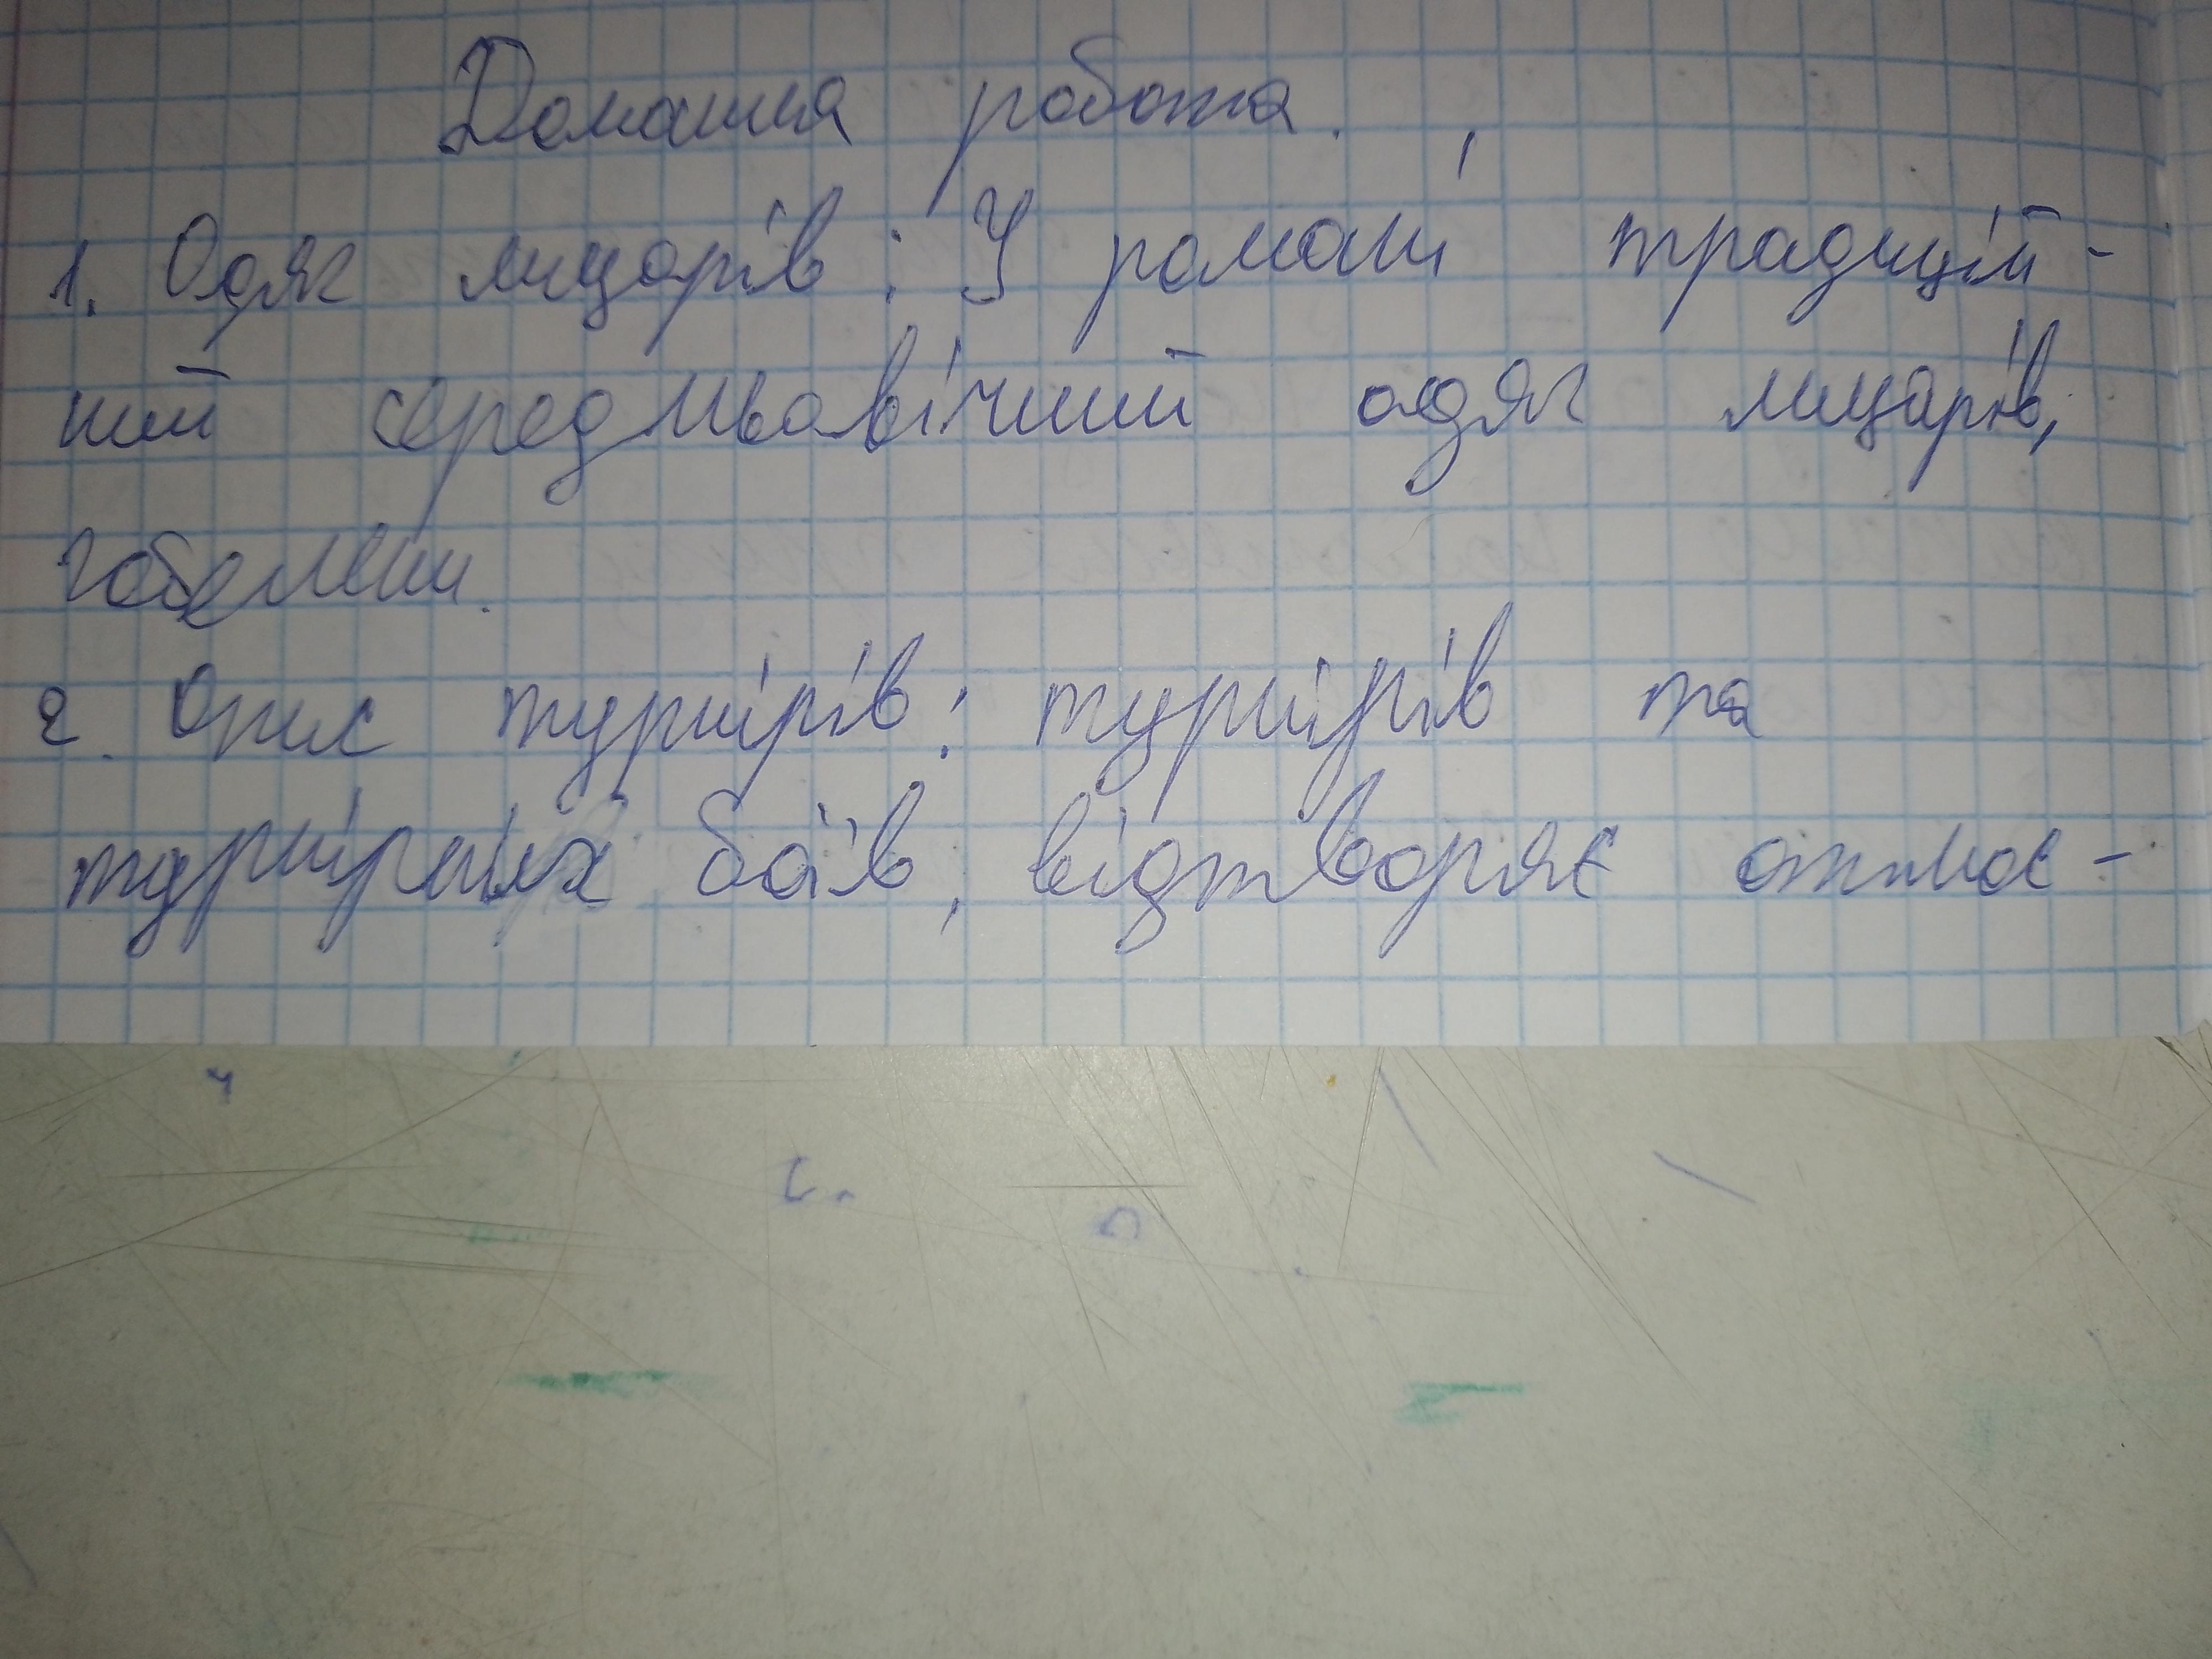 Домашня робота.
1. Одяг лицарів: У романі традицій-
ний середньовічний одяг лицарів,
гобелени.
2. Опис турнірів: турнірів та
турнірних боїв, відтворяє атмос-